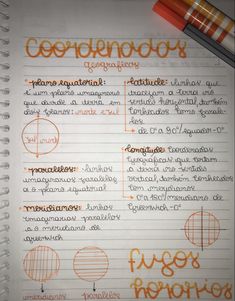 Coordenadas
geográficas
• plano equatorial:
é um plano imaginário
que divide a terra em
dois planos: norte e sul
• paralelos: linhas
imaginárias paralelas
a o plano equatorial
meridianos: linhas
imaginárias paralelas
a o meridiano de
greenwich
meridianos
paralelos
• latitude: linhas que
tracejam a terra no
sentido horizontal, também
conhecidos como parale-
los
de 0° a 90°/equador-0°
longitude: coordenadas
geográficas que cortam
a terra no sentido
vertical, também conhecidos
com meridianos
0° a 180° meridiano de
Greenwich-0°
fusos
horários